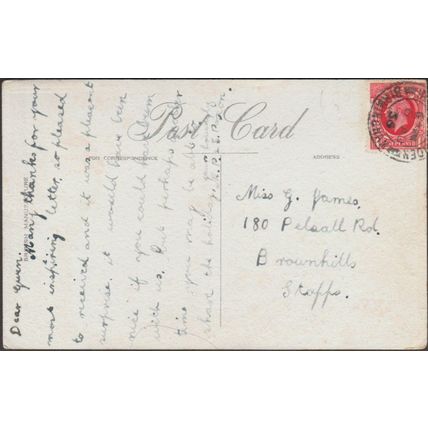 Post Card
FOR CORRESPONDENCE
ADDRESS
BRITISH MANUFACTURE
Dear Gwen.
Many thanks for your
most inspiring letter, so pleased
to received and it was a pleasant
surprise it would have been
nice if you could have been
with us. But perhaps under
time you may be able
share the holidays
Miss G. James,
180 Pelsall Rd.
Brownhills
Staffs.